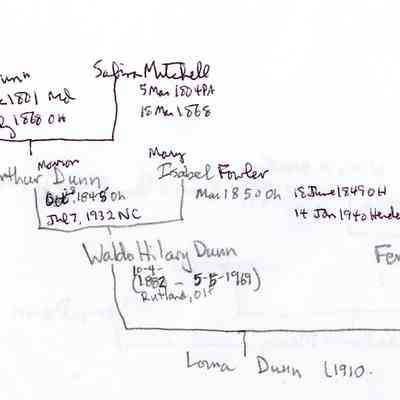 Safira Mitchell
5 Mar 1804 PA
18 Mar 1868
1801 Md
1868 OH
Marion
Arthur Dunn
Oct 1845 Oh
Jul 7, 1932 NC
Mary
Isabel Fowler
Mar 1850 Oh
18 June 1849 OH
14 Jan 1940 Hende
Waldo Hilary Dunn
10-4-
(1882 - 5-5-1969)
Rutland, OH
Fer
Lorna Dunn (1910-